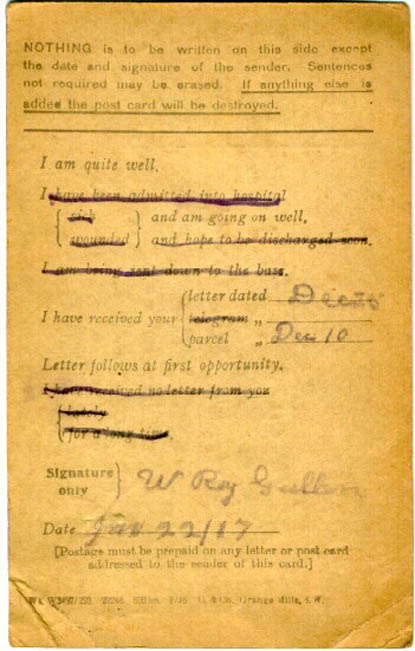 NOTHING is to be written on this side except
the date and signature of the sender. Sentences
not required may be erased. If anything else is
added the post card will be destroyed.
I am quite well.
I have been admitted into hospital
{ sick } and am going on well.
{ wounded } and hope to be discharged soon.
I am being sent down to the base.
letter dated Dec
I have received your { telegram „
parcel „ Dec 10
Letter follows at first opportunity.
I have received no letter from you
{ lately
{ for a long time.
Signature
only } W Roy
Date Jan 22/17
[Postage must be prepaid on any letter or post card
addressed to the sender of this card.]
W3497/293 & Co., Grange Mills, S.W.